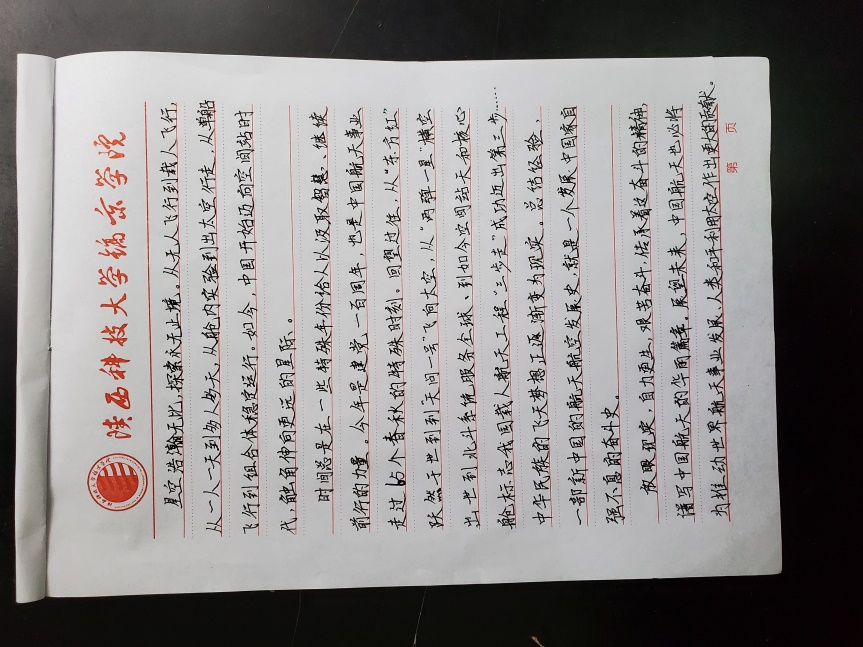 陕西科技大学镐京学院
星空浩瀚无比,探索永无止境。从无人飞行到载人飞行,
从一人一天到多人多天,从舱内实验到出太空行走,从单船
飞行到组合体稳定运行。如今,中国开始迈向空间站时
代,触角伸向更远的星际。
时间总是在一些特殊年份给人以汲取智慧、继续
前行的力量。今年是建党一百周年,也是中国航天事业
走过65个春秋的特殊时刻。回望过往,从“东方红”
跃然于世到到天问一号”飞向太空,从“两弹一星”横空
出世到北斗系统服务全球、到如今空间站天和核心
舱标志我国载人航天工程“三步走”成功迈出第三步……
中华民族的飞天梦想正逐渐变为现实。总结经验,
一部新中国的航天航空发展史,就是一个发展中国家自
强不息的奋斗史。
放眼现实,自力更生,艰苦奋斗,传承着这奋斗的精神,
谱写中国航天的华丽篇章。展望未来,中国航天也必将
为推动世界航天事业发展,人类和平利用太空作出更大的贡献。
第 页